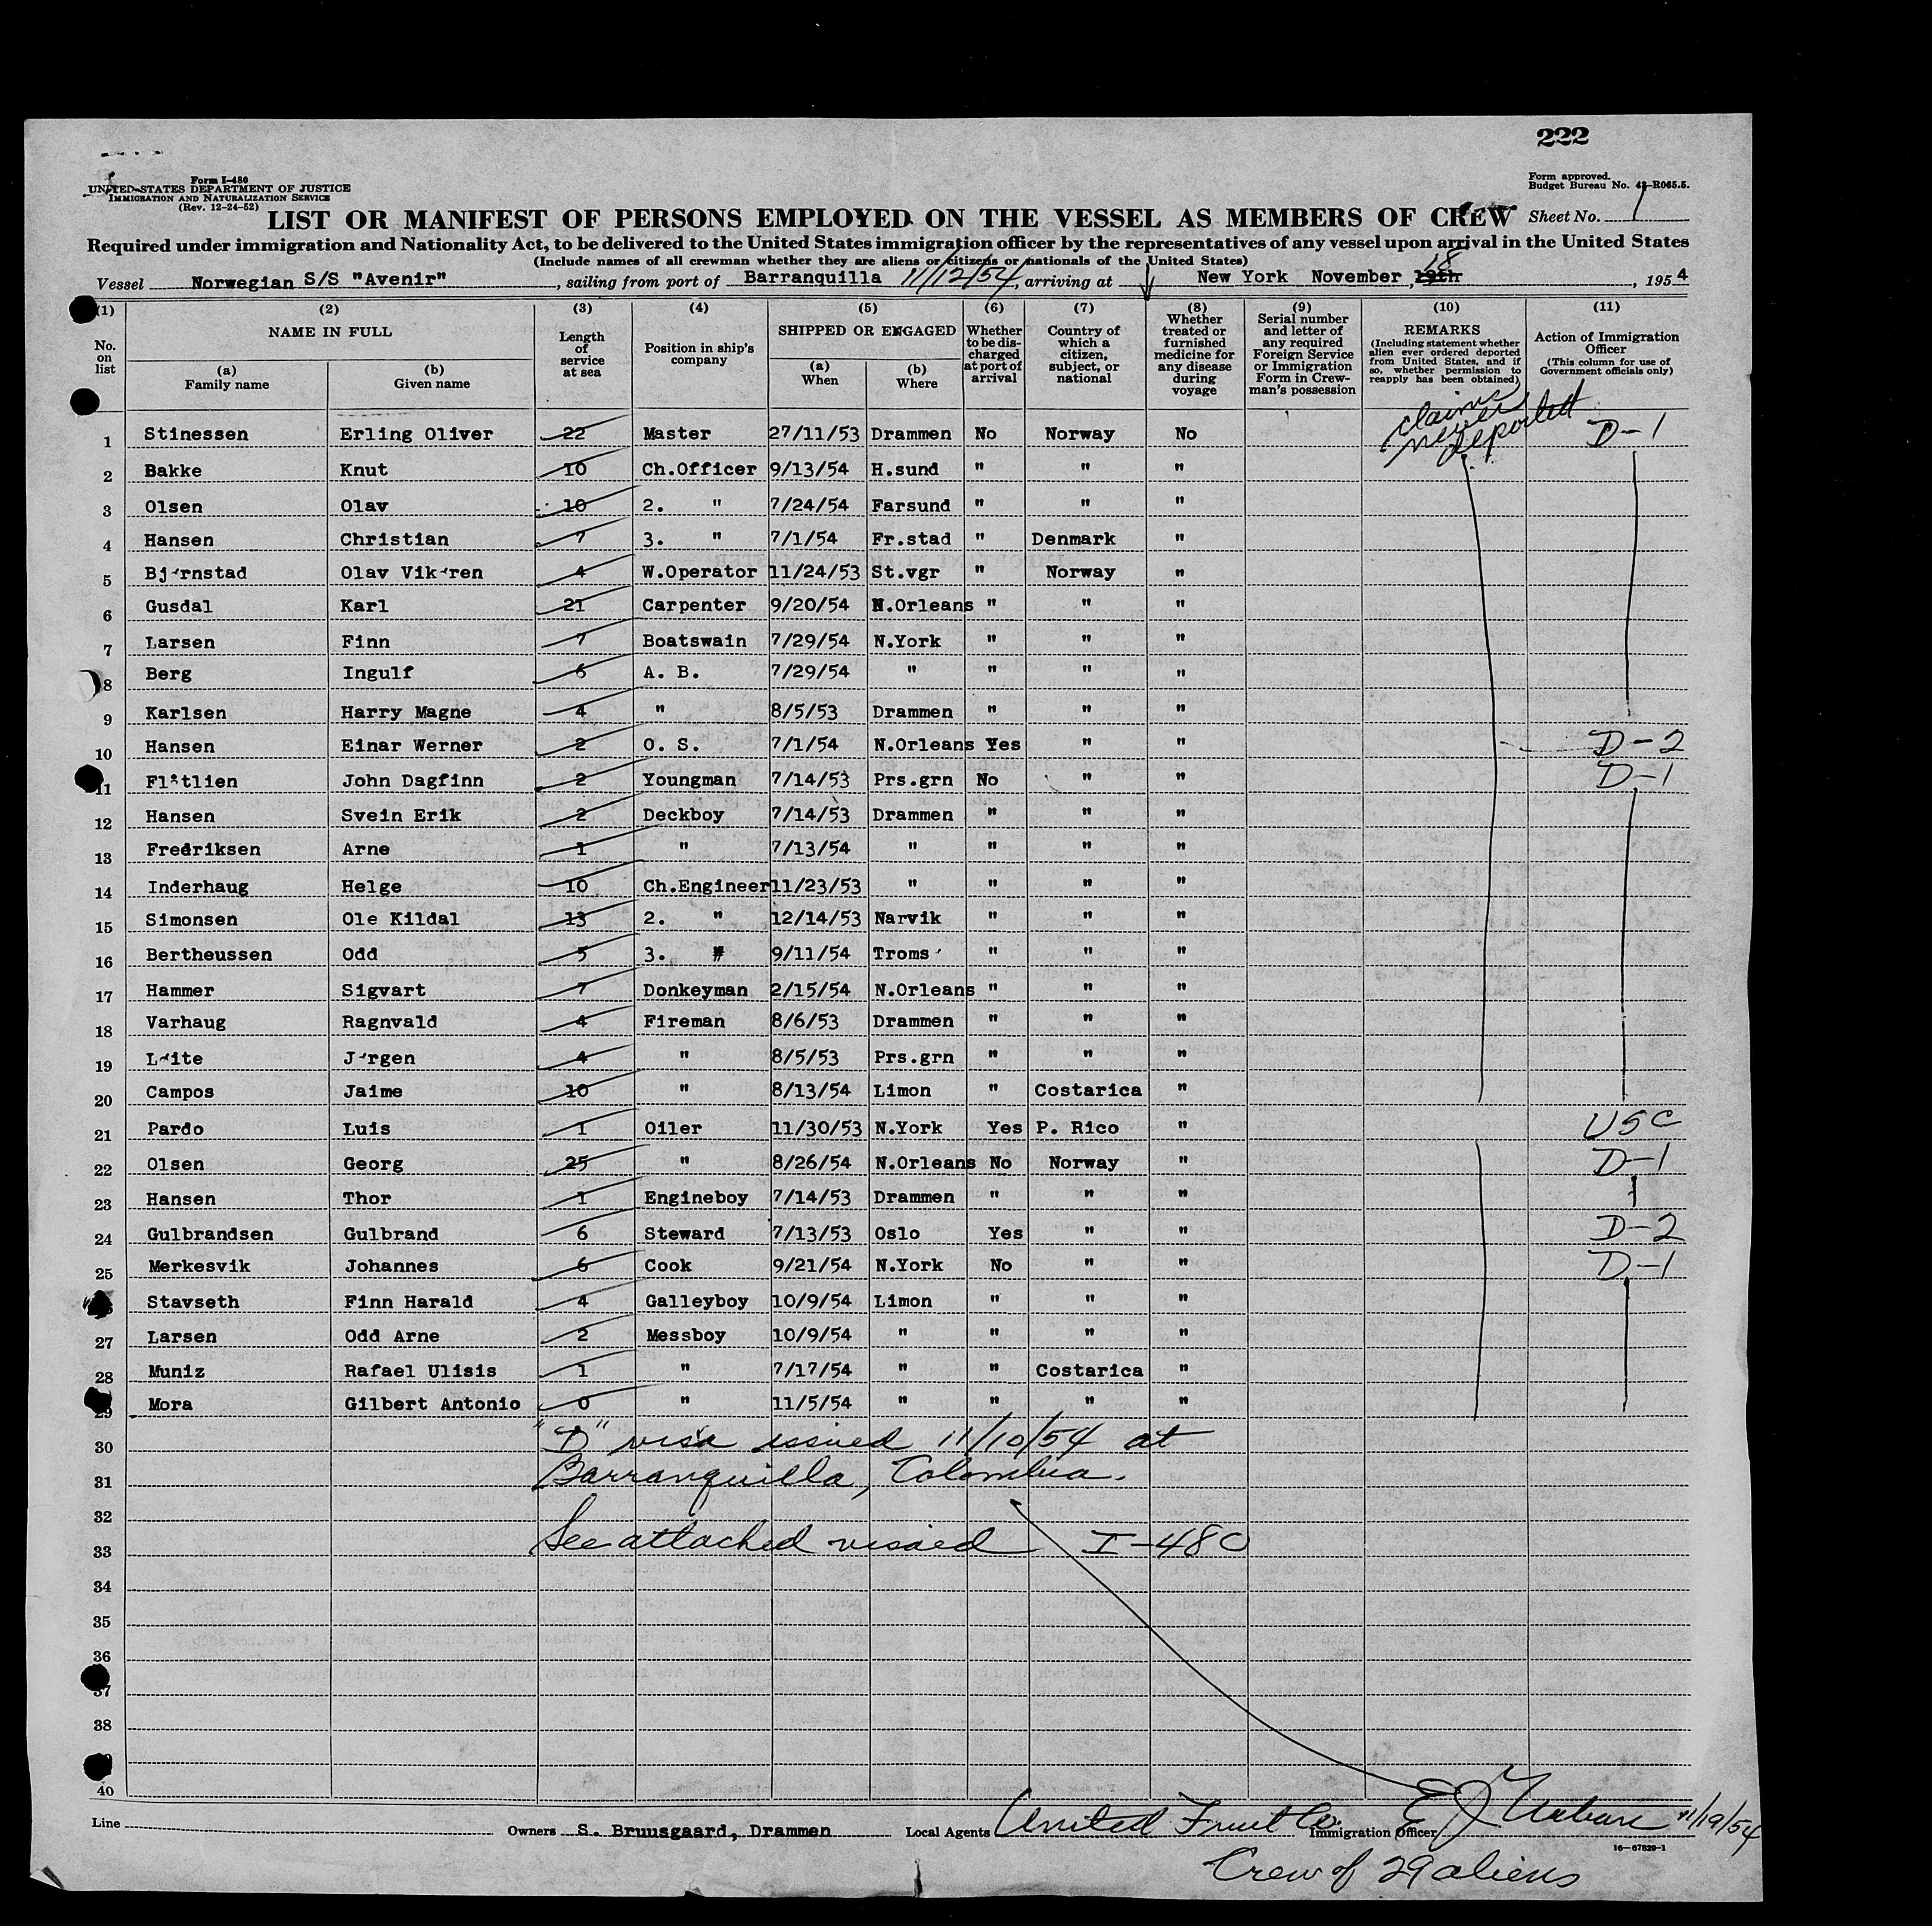 222
Form I-480
UNITED STATES DEPARTMENT OF JUSTICE
IMMIGRATION AND NATURALIZATION SERVICE
(Rev. 12-24-52)
Form approved.
Budget Bureau No. 43-R065.5.
LIST OR MANIFEST OF PERSONS EMPLOYED ON THE VESSEL AS MEMBERS OF CREW Sheet No. 1
Required under immigration and Nationality Act, to be delivered to the United States immigration officer by the representatives of any vessel upon arrival in the United States
(Include names of all crewman whether they are aliens or citizens or nationals of the United States)
Vessel Norwegian S/S "Avenir", sailing from port of Barranquilla 11/12/54, arriving at New York November, 18 19th, 1954
(1) (2) (3) (4) (5) (6) (7) (8) (9) (10) (11)
No. on list
NAME IN FULL
(a) Family name
(b) Given name
Length of service at sea
Position in ship's company
SHIPPED OR ENGAGED
(a) When
(b) Where
Whether to be discharged at port of arrival
Country of which a citizen, subject, or national
Whether treated or furnished medicine for any disease during voyage
Serial number and letter of any required Foreign Service or Immigration Form in Crewman's possession
REMARKS
(Including statement whether alien ever ordered deported from United States, and if so, whether permission to reapply has been obtained)
Action of Immigration Officer
(This column for use of Government officials only)
claims never deported
1 Stinessen Erling Oliver 22 Master 27/11/53 Drammen No Norway No D-1
2 Bakke Knut 10 Ch.Officer 9/13/54 H.sund " " "
3 Olsen Olav 10 2. " 7/24/54 Farsund " " "
4 Hansen Christian 7 3. " 7/1/54 Fr.stad " Denmark "
5 Bj´rnstad Olav Vik´ren 4 W.Operator 11/24/53 St.vgr " Norway "
6 Gusdal Karl 21 Carpenter 9/20/54 N.Orleans " " "
7 Larsen Finn 7 Boatswain 7/29/54 N.York " " "
8 Berg Ingulf 6 A. B. 7/29/54 " " " "
9 Karlsen Harry Magne 4 " 8/5/53 Drammen " " "
10 Hansen Einar Werner 2 O. S. 7/1/54 N.Orleans Yes " " D-2
11 Flåtlien John Dagfinn 2 Youngman 7/14/53 Prs.grn No " " D-1
12 Hansen Svein Erik 2 Deckboy 7/14/53 Drammen " " "
13 Fredriksen Arne 1 " 7/13/54 " " " "
14 Inderhaug Helge 10 Ch.Engineer 11/23/53 " " " "
15 Simonsen Ole Kildal 13 2. " 12/14/53 Narvik " " "
16 Bertheussen Odd 5 3. " 9/11/54 Troms´ " " "
17 Hammer Sigvart 7 Donkeyman 2/15/54 N.Orleans " " "
18 Varhaug Ragnvald 4 Fireman 8/6/53 Drammen " " "
19 L´ite J´rgen 4 " 8/5/53 Prs.grn " " "
20 Campos Jaime 10 " 8/13/54 Limon " Costarica "
21 Pardo Luis 1 Oiler 11/30/53 N.York Yes P. Rico " USC
22 Olsen Georg 25 " 8/26/54 N.Orleans No Norway " D-1
23 Hansen Thor 1 Engineboy 7/14/53 Drammen " " "
24 Gulbrandsen Gulbrand 6 Steward 7/13/53 Oslo Yes " " D-2
25 Merkesvik Johannes 6 Cook 9/21/54 N.York No " " D-1
Stavseth Finn Harald 4 Galleyboy 10/9/54 Limon " " "
27 Larsen Odd Arne 2 Messboy 10/9/54 " " " "
28 Muniz Rafael Ulisis 1 " 7/17/54 " " Costarica "
29 Mora Gilbert Antonio 0 " 11/5/54 " " " "
30 "D" visa issued 11/10/54 at
31 Barranquilla, Colombia.
32
33 See attached visaed I-480
34
35
36
37
38
40
Line Owners S. Bruusgaard, Drammen Local Agents United Fruit Co. Immigration Officer E J Urban 11/19/54
16-67829-1
Crew of 29 aliens